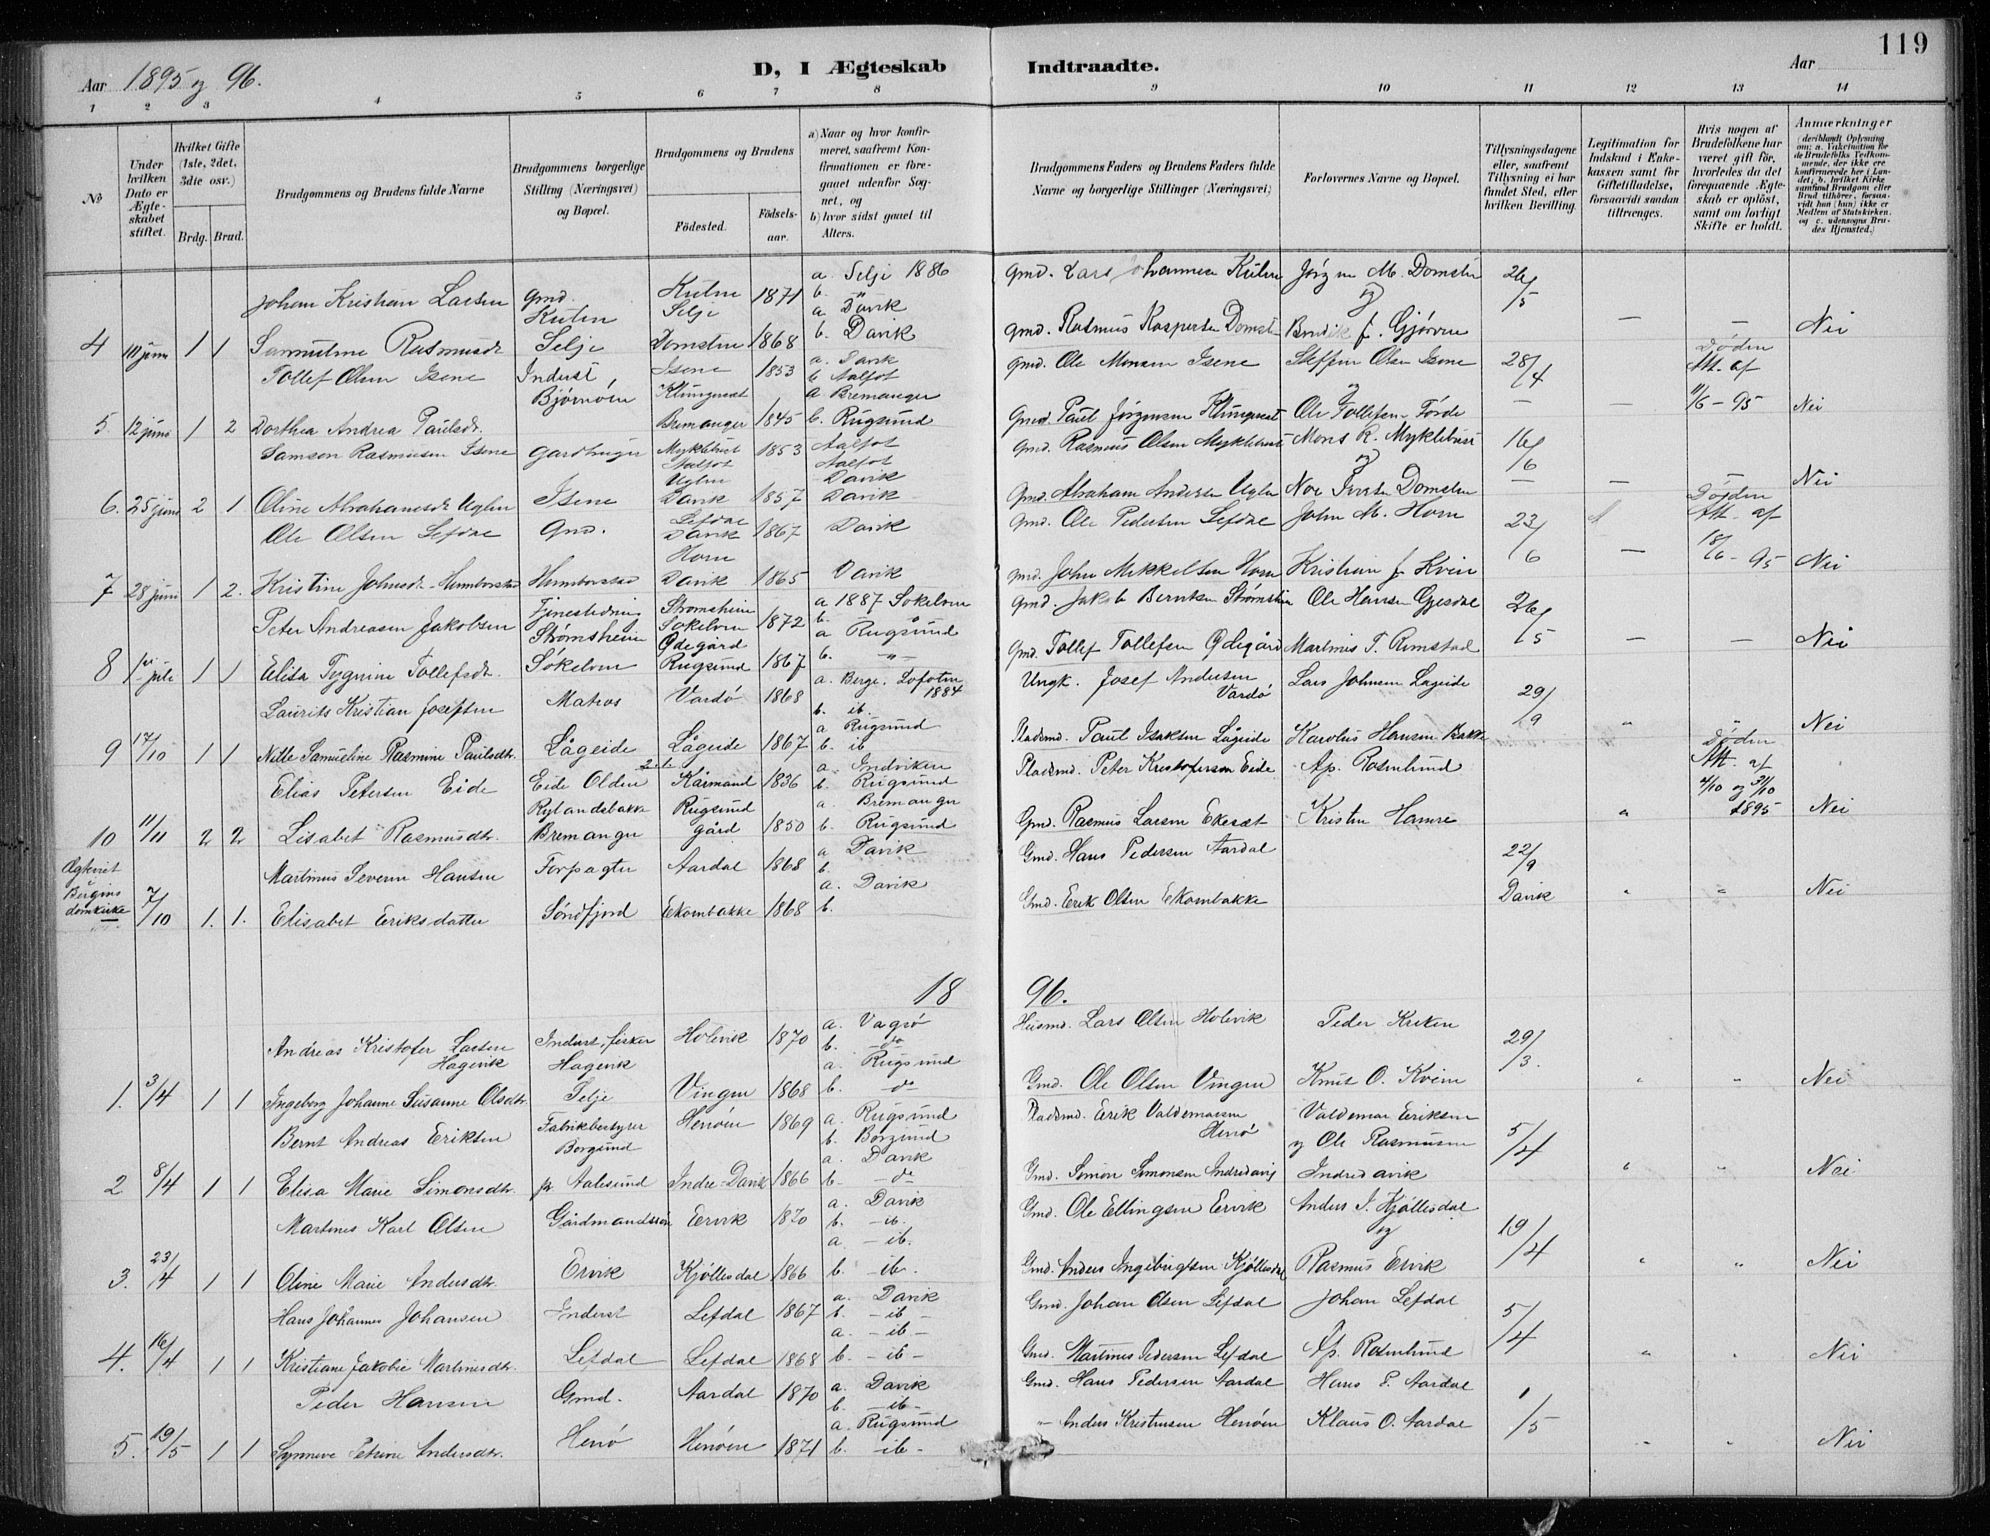 119
Aar 1895 og 96.
D, I Ægteskab Indtraadte.
Aar
1 2 3 4 5 6 7 8 9 10 11 12 13 14
No
Under hvilken Dato er Ægteskabet stiftet.
Hvilket Gifte (1ste, 2det, 3die osv.)
Brdg. Brud.
Brudgommens og Brudens fulde Navne
Brudgommens borgerlige Stilling (Næringsvei) og Bopæl.
Brudgommens og Brudens
Födested.
Födselsaar.
a) Naar og hvor konfirmeret, saafremt Konfirmationen er foregaaet udenfor Sognet, og
b) hvor sidst gaaet til Alters.
Brudgommens Faders og Brudens Faders fulde Navne og borgerlige Stillinger (Næringsvei)
Forlovernes Navne og Bopæl.
Tillysningsdagene eller, saafremt Tillysning ei har fundet Sted, efter hvilken Bevilling.
Legitimation for Indskud i Enkekassen samt for Giftetilladelse, forsaavidt saadan tiltrænges.
Hvis nogen af Brudefolkene har været gift før, hvorledes da det foregaaende Ægteskab er opløst, samt om lovligt Skifte er holdt.
Anmærkninger (deriblandt Oplysning om: a. Vakcination for de Brudefolks Vedkommende, der ikke ere konfirmerede her i Landet; b. hvilket Kirkesamfund Brudgom eller Brud tilhører, forsaavidt han (hun) ikke er Medlem af Statskirken, og c. udensogns Brudes Hjemsted.)
Johan Kristian Larsen Gmd. Kulen 1871 a. Selje 1886 Gmd. Lars Johannesen Kulen Jørgen M. Domsten 26/5
Kulen Selje b. "
4 10 juni 1 1 Samueline Rasmusdtr Selje Domsten 1868 a Davik b. Davik Gmd. Rasmus Kaspersen Domst. f. Gjørven — — Nei
Tollef Olsen Isene Inderst Isene 1853 a. Davik b Aalfot Gmd. Ole Monsen Isene Steffen Olsen Isene 28/4 Døden Att. af
Bjørnøen a Bremanger
5. 12 juni 1 2 Dorthea Andrea Paulsdt. Bremanger 1845 b. Rugsund Gmd. Paul Jørgensen Ole Tollefsen Förde — — 11/6 - 95 Nei
Samson Rasmusen Isene Gardbruger Myklebust Aalfot 1853 Aalfot Aalfot Gmd. Rasmus Olsen Myklebust Mons R. Myklebust og 16/6
6. 25 juni 2 1 Oline Abrahamsdt Uglen Isene Uglen Davik 1857 Davik Davik Gmd. Abraham Andersen Uglen Domsten — — — Nei
Ole Olsen Lefdal Gmd. Lefdal Davik 1867 Davik Gmd. Ole Pedersen Lefdal John M. Horn 23/6 Døden Att. af
7 28 juni 1 2. Kristine Johnsdt. Hunborstad Hunborstad Horn Davik 1865 Davik Gmd. John Mikkelsen Horn Kristian J. Kvien — 18/6 - 95 Nei
Peter Andreasen Jakobsen Strømsheim Sökelven 1872 a 1887 Sökelven b. " Gmd. Jakob Berntsen Strømsheim Ole Hansen Gjesdal 26/5
Strømsheim Ødegård a Rugsund
8 1ste juli 1 1 Elisa Tollefsdt. Sökelven Rugsund 1867 b. — " — Gmd. Tollef Tollefsen Ødegård Martinus T. Rimstad — — Nei
Laurits Kristian Josefsen Matros Vardö 1868 a. Berge, Lofoten 1884 b. ib. Ungk. Josef Andersen Vardö Lars Johnsen Lageide 29/9
9 17/10 1 1 Nille Samueline Rasmine Paulsdtr. Lågeide Lågeide 1867 a Rugsund b. ib Pladsmd. Paul Isaksen Lågeide Karolus Hansen Bakke " " Nei
Elias Petersen Eide Eide Olden 1836 a. Indviken b. Rugsund Pladsmd. Peter Kristofersen Eide Ap. Rosenlund Døden Att. af
Rylandsbakke Rugsund a. Bremanger
10 11/11 2 2 Lisabet Rasmusdtr. Bremanger gård 1850 b. Rugsund Gmd. Rasmus Larsen Ekesæt Kristen Hamre " 4/10 og 31/10 1895 Nei
Martinus Severin Hansen Forpagter Aardal 1868 a Davik b. Gmd. Hans Pedersen Aardal 22/9
Ægteviet i Bergens domkirke 7/10 1. 1. Elisabet Eriksdatter Söndfjord Ekornbakke 1868 a. Davik b. Gmd. Erik Olsen Ekornbakke Davik " " Nei
1896.
Andreas Kristofer Larsen Hagevik Inderst, fisker Holevik 1870 a. Vagsö b. do Husmd. Lars Olsen Holevik Peder Kviken 29/3.
Hagevik a. Rugsund
1. 3/4 1 1 Ingeborg Johanne Susanne Olsdtr. Selje Vingen 1868 b. — do Gmd. Ole Olsen Vingen Knut O. Kvien " " Nei
Bernt Andreas Eriksen Fabrikbestyrer Henöen 1869 a. Rugsund b. Borgund Pladsmd. Erik Valdemarsen Henö Valdemar Eriksen og Ole Rasmusen 5/4
Borgund a. Davik
2 8/4 1 1 Elisa Marie Simonsdtr. pr Aalesund Indre-Davik 1866 b. — do Gmd. Simon Simonsen Indredavik Indredavik " " Nei
Martines Karl Olsen Gårdmandssön Ervik 1870 a. Davik b. — ib. Gmd. Ole Ellingsen Ervik Anders J. Kjöllesdal og 19/4
3. 23/4 1 1 Oline Marie Andersdtr. Ervik Kjöllesdal 1866 a. — ib. b. — ib. Gmd. Anders Ingebrigtsen Kjöllesdal Rasmus Ervik " " Nei
Hans Johannes Johansen Inderst Lefdal 1867 a. Davik b. — ib — Gmd. Johan Olsen Lefdal Johan Lefdal 5/4
4. 16/4 1 1 Kristiane Jakobie Martinusdtr. Lefdal Lefdal 1868 a. — ib — b. — ib — Gmd. Martinus Pedersen Lefdal Ap. Rosenlund " " Nei
Peder Hansen Gmd. Aardal 1870 a. Davik b. — ib — Gmd. Hans Pedersen Aardal Hans P. Aardal 1/5
5. 19/5 1 1 Synneve Petrine Andersdtr. Henö Henöen 1871 a. Rugsund b. — ib — " Anders Kristensen Henöen Klaus O. Aardal " " Nei